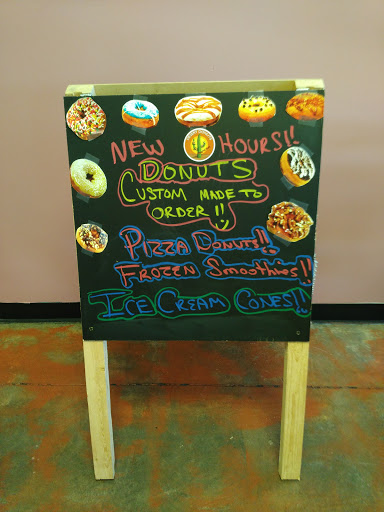 NEW HOURS!!
DONUTS
CUSTOM MADE TO
ORDER!!
PIZZA DONUTS!!
FROZEN SMOOTHIES!!
ICE CREAM CONES!!